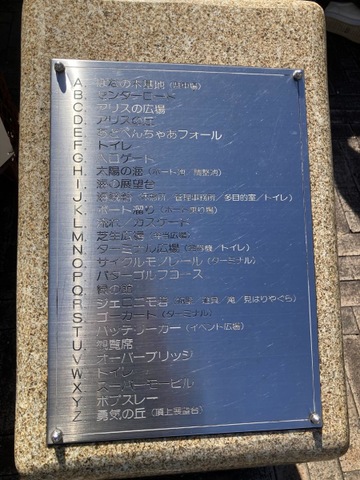 A. の木基地 (駐車場)
B. ワンダーロード
C. アリスの広場
D. アリスの丘
E. あどべんちゃあフォール
F. トイレ
G. ゲート
H. 太陽の海 (ボート池 調整池)
I. 海の展望台
J. (管理事務所/多目的室/トイレ)
K. ボート溜り (ボート乗り場)
L. 流れ カスケード
M. 芝生広場
N. ターミナル広場 (トイレ)
O. サイクルモノレール (ターミナル)
P. パターゴルフコース
Q. 緑の館
R. ジェロニモ砦 (滝/見はりやぐら)
S. ゴーカート (ターミナル)
T. バッテリーカー (イベント広場)
U. 観覧席
V. オーバーブリッジ
W. トイレ
X. スーパーモービル
Y. ボブスレー
Z. 勇気の丘 (頂上展望台)